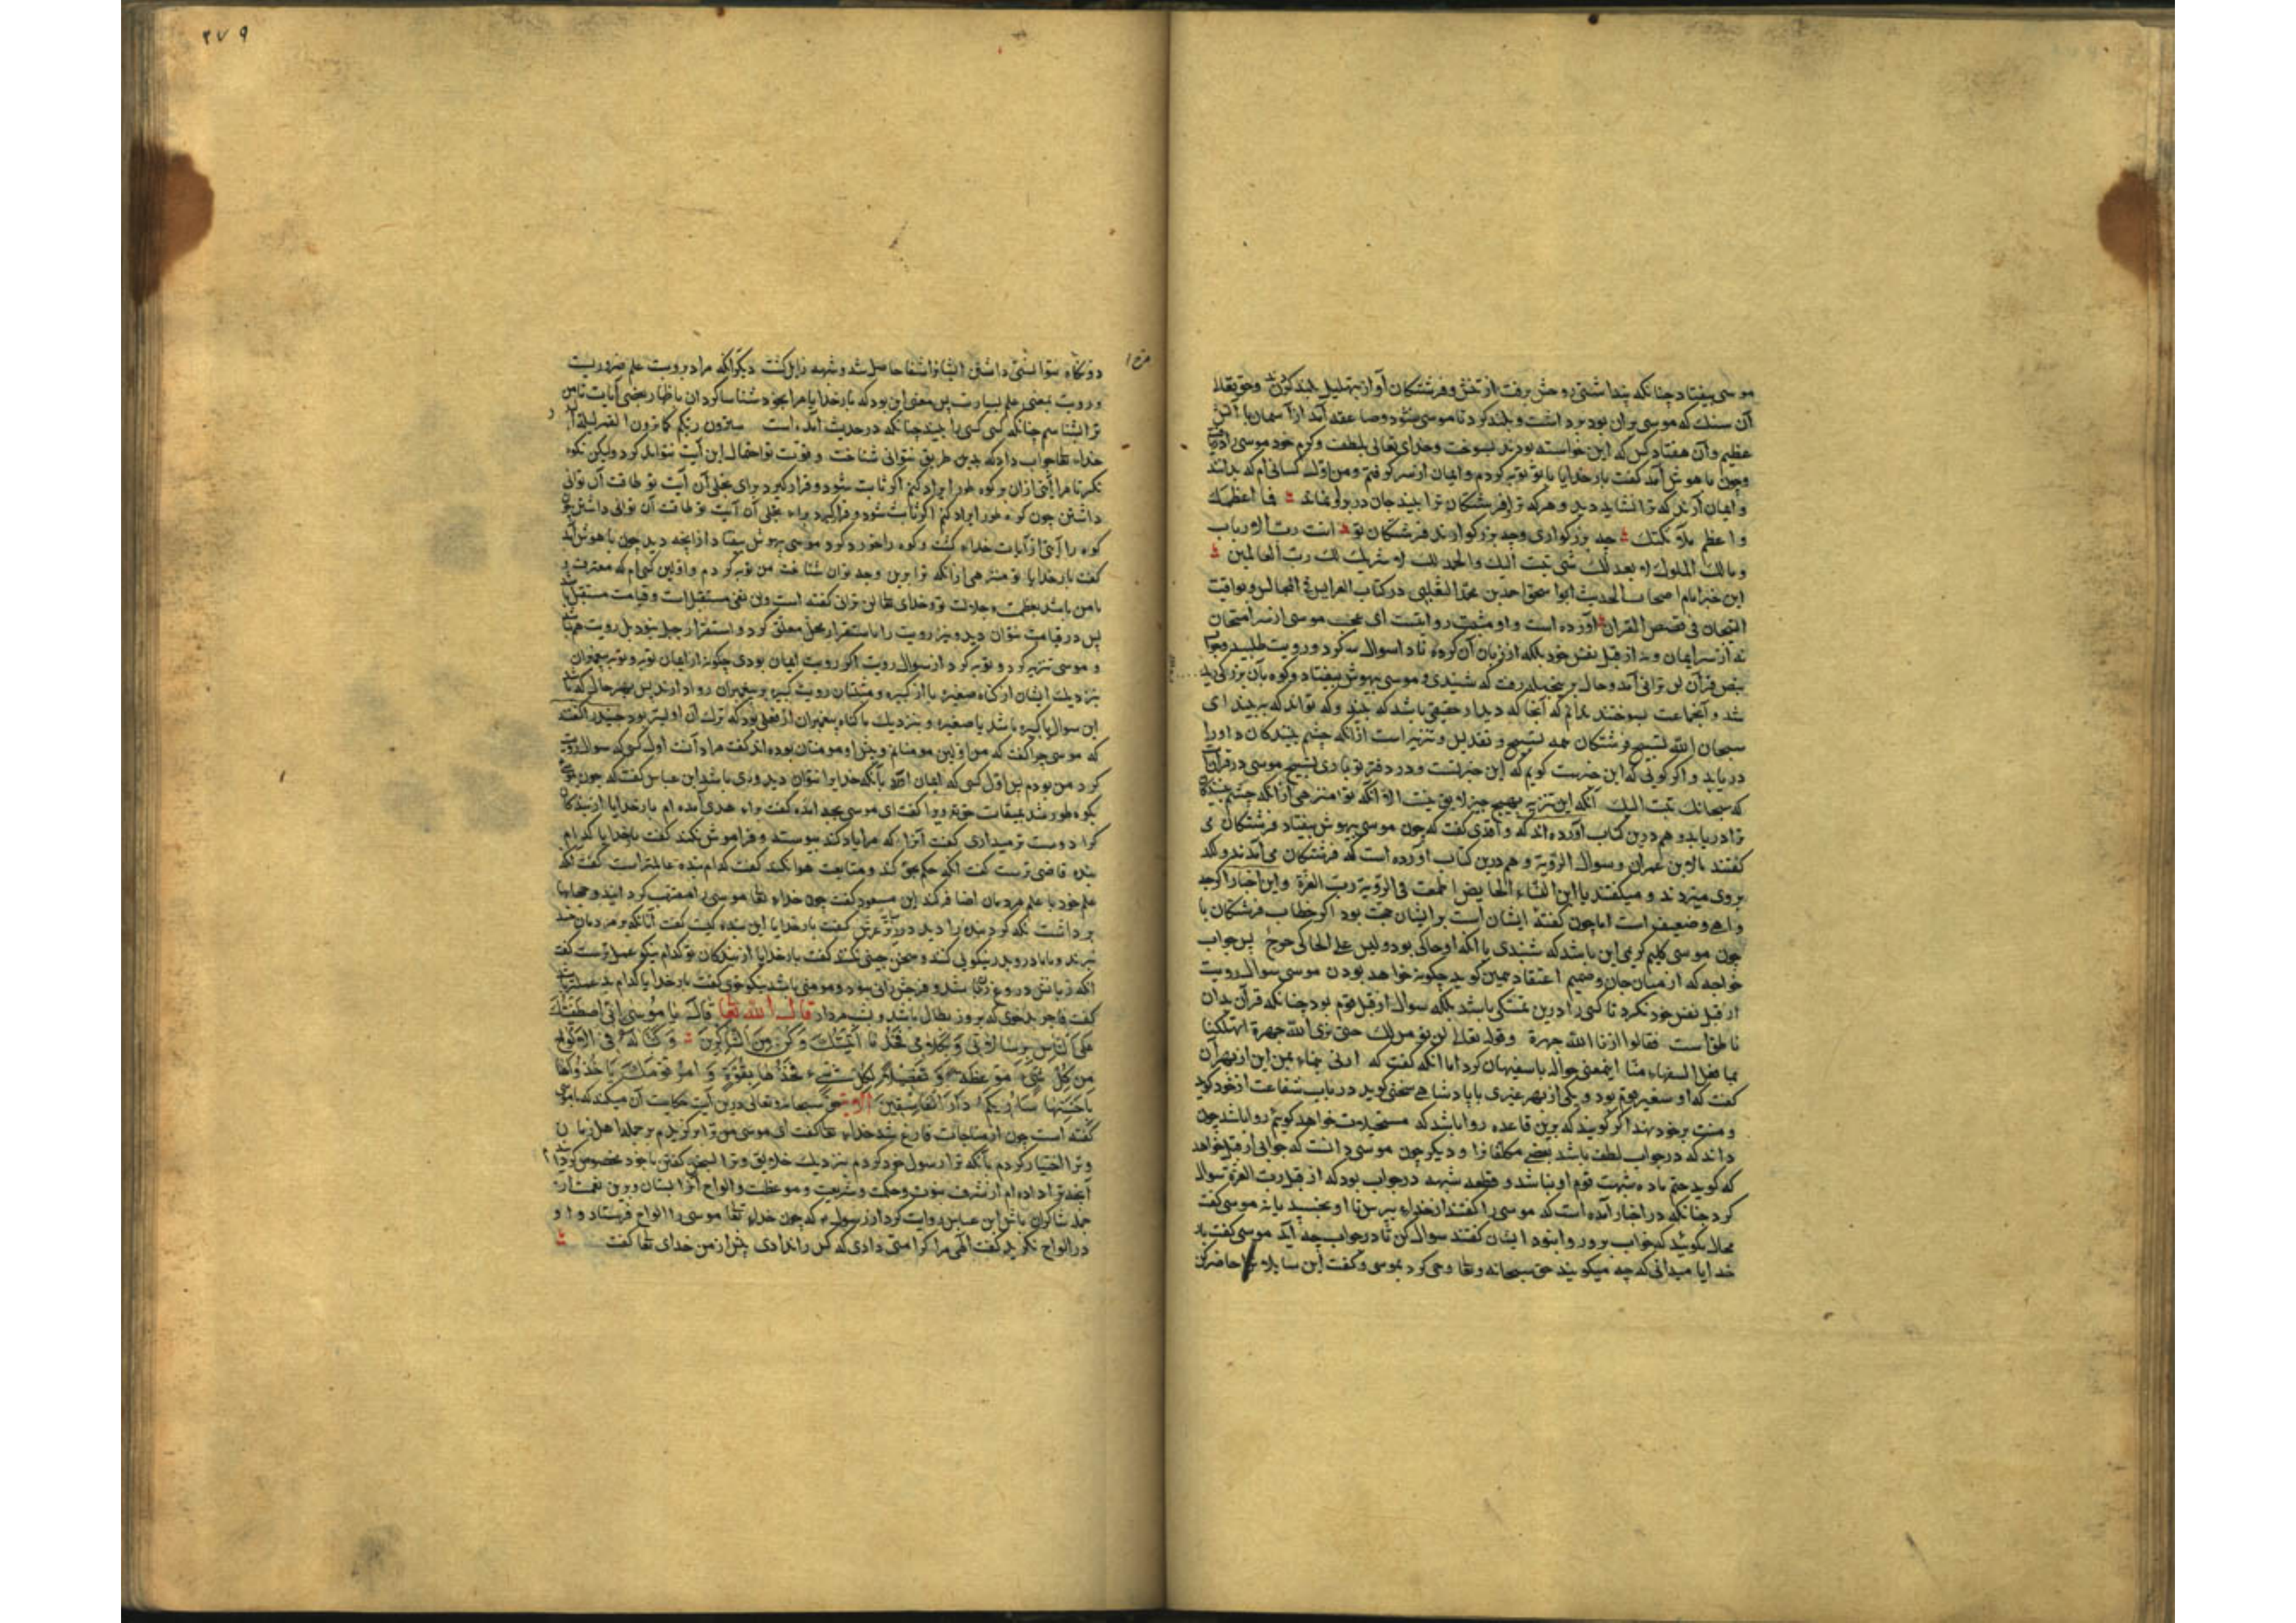 موسی بیفتاد چنانکه پنداشتی روحش برفت از تنش و فرشتگان آواز بتهلیل بلند کردند و حق تعالی
آن سنک که موسی بران بود برداشت و بلند کرد تا موسی نشود و صاعقه آمد از آسمان با آتش
عظیم و آن هفتاد کس که این خواسته بودند بسوخت و خدای تعالی بلطف و کرم خود موسی را دریافت
و چون با هوش آمد کفت بار خدایا با تو توبه کردم و ایمان از سر کرفتم و من اول کسانی ام که بدانند
و ایمان آرند که ترا نشاید دید و هر که ترا و فرشتکان ترا بیند جان در بر او نماند فما اعظمک
و اعظم ملآئکتک چه بزرکواری و چه بزرکوارند فرشتگان تو انت رب الارباب
و مالک الملوک لا یعدلک شی تبت الیک والحمد لک لا شریک لک رب العالمین
این خبر امام اصحاب الحدیث ابو اسحق احمد بن محمد الثعلبی در کتاب العرایس فی المجالس و یواقیت
التیجان فی قصص القران آورده است و او مثبت رویتست ای عجب موسی از سر امتحان
نه از سر ایمان و نه از قبل نفس خود بلکه از زبان آن کروه نادان سوال کرد و رویت طلبید و جواب
بنص قرآن لن ترانی آمد و حال بر رفت که شنیدی و موسی بیهوش بیفتاد و کوه بآن بزرکی
شد و آنجماعت بسوختند ندانم که آنجا که دیدار حقیقی باشد که بیند و که تواند که ببیند ای
سبحان الله تسبیح فرشتکان همه تسبیح و تقدیس و تنزیه است از انکه چشم بینندکان او را
دریابد و اکر کویی که این خبرست کویم که این خبر تست و در دفتر تو باری تسبیح موسی در قرآنست
که سبحانک تبت الیک آنکه این تنزیه بهیچ چیز لایق نیست الا آنکه تو منزهی از انکه چشم بیننده
ترا دریابد و هم درین کتاب آورده اند که واقدی کفت که چون موسی بیهوش بیفتاد فرشتکان می
کفتند مالابن عمران و سوال الرؤیة و هم درین کتاب آورده است که فرشتکان می آمدند و لکد
بروی میزدند و میکفتند یا ابن النساء الحایض اطمعت فی الرؤیة رب العزة و این اخبار اکرچه
واهی و ضعیفست اما چون کفتۀ ایشان است بر ایشان حجت بود اکر خطاب فرشتکان با
چون موسی کلیم کریمی این باشد که شنیدی با انکه او حاکی بود و لیس علی الحاکی حرج پس جواب
خواجه که از میان جان و صمیم اعتقاد همین کوید چکونه خواهد بودن موسی سوال رویت
از قبل نفس خود نکرد تا کسی را درین تمسکی باشد بلکه سوال از قبل قوم بود چنانکه قرآن بدان
ناطق است فقالوا ارنا الله جهرة و قوله تعالی لن نؤمن لک حتی نری الله جهرة اتهلکنا
بما فعل السفهاء منا اینمعنی حواله با سفیهان کرد اما انکه کفت که ارنی بنماء بمن این از بهر آن
کفت که او سفیر قوم بود و یکی از بهر غیری با پادشاهی سخنی کوید در باب شفاعت از خود کوید
و منت بر خود نهد اکر کویند که برین قاعده روا باشد که مستحیلات خواهد کویم روا باشد چون
داند که در جواب لطف باشد بعضی مکلفانرا و دیکر چون موسی دانست که جوابی از قبل خواهد
که کوید حتم ماده شبهت قوم او نباشد و قطعه شبهه در جواب بود که از قبل رب العزة سوال
کرد چنانکه در اخبار آمده است که موسی را کفتند از خدای بپرس تا او بخسبد یا نه موسی کفت
محال مکوئید که خواب برو روا نبود ایشان کفتند سوال کن تا در جواب چه آید موسی کفت بار
خدایا میدانی که چه میکویند حق سبحانه و تعا وحی کرد بموسی و کفت این سایلان را حاضر کن
دو نکاه نتوانستی داشتن ایشانرا شفا حاصل شد و شبهه زایل کشت دیکر آنکه مراد برویت علم ضروریست
و رویت بمعنی علم بسیارست پس معنی این بود که بار خدایا مرا بخود شناسا کردان باظهار بعضی آیات تا من
ترا بشناسم چنانکه کسی کسی را بیند چنانکه در حدیث آمده است سترون ربکم کما ترون القمر لیلة
خداء تعا جواب داد که بدین طریق نتوانی شناخت و قوت تو احتمال این آیت نتواند کرد ولیکن بکوه
نکر تا مرا آیتی ازان بر کوه طور ایراد کنم اکر ثابت شود و قرار کیرد برای تجلی آن آیت تو طاقت آن توانی
داشتن چون کوه طور ایراد کنم اکر ثابت شود و قرار کیرد براء تجلی آن آیت تو طاقت آن توانی داشتن
کوه را آیتی از آیات خداء کشت و کوه را خورد کرد موسی بیهوش بیفتاد از انچه دید چون با هوش آمد
کفت بار خدایا تو منزهی از انکه ترا برین وجه توان شناخت من توبه کردم و اولین کسی ام که معترفست
با من باشد بعظمت و جلالت تو و خدای تعا لن ترانی کفته است ولن نفی مستقبل است و قیامت مستقبل
پس در قیامت نتوان دید و نیز رویت را باستقرار جبل معلق کرد و استقرار جبل نبود پس رویت هم
و موسی تنزیه کرد و توبه کرد از سوال رویت اکر رویت ایمان بودی چکونه از ایمان توبه و توبه پیغمبران
بنزدیک ایشان از کناه صغیره یا از کبیره و مثبتان رویت کبیره بر پیغمبران روا دارند پس بهر حال که
این سوال یا کبیره باشد یا صغیره و بنزدیک ما کناه پیغمبران از فعلی بود که ترک آن اولیتر بود
که موسی چرا کفت که من اولین مومنانم و پیش او مومنان بوده اند کفت مراد آنست اول کسی که سوال رویت
کرد من بودم پس اول کسی که ایمان آورد بآنکه خدایرا نتوان دید وی باشد ابن عباس کفت که چون موسی
بکوه طور شد بمیقات حق تعا ورا کفت ای موسی بچه آمده کفت براء هدی آمده ام بار خدایا از بندکان
کرا دوست تر میداری کفت آنرا که مرا یاد کند پیوسته و فراموش نکند کفت بار خدایا کدام
بنده قاضی ترست کفت انکه حکم بحق کند و متابعت هوا نکند کفت کدام بنده عالمتر است کفت انکه
علم خود با علم مردمان اضافه کند ابن مسعود کفت چون خداء تعا موسی را مقرب کردانید و حجابها
برداشت نکه کرد بنده را دید در زیر عرش کفت بار خدایا این بنده کیست کفت آنانکه بر مردمان حسد
نبرند و با مادر و پدر نیکویی کند و سخن چینی نکند کفت بار خدایا از بندکان تو کدام نیکو عمل ترست کفت
انکه زبانش دروغ زن نباشد و فرجش زانی نبود و مومنی باشد نیکو خوی کفت بار خدایا کدام بد عملتر
کفت فاجر بدخوی که بروز بطال باشد و بشب مردار قال الله تعا قالَ یا مُوسی اِنّی اصطَفَیتُکَ
عَلَی النّاسِ بِرِسالاتی وَ بِکَلامی فَخُذ ما آتَیتُکَ وَ کُن مِنَ الشّاکِرینَ وَ کَتَبنا لَهُ فِی الاَلواحِ
مِن کُلِّ شَیءٍ مَوعِظَةً وَ تَفصیلاً لِکُلِّ شَیءٍ فَخُذها بِقُوَّةٍ وَ امُر قَومَکَ یَاخُذُوا
بِاَحسَنِها سَاُریکُم دارَ الفاسِقینَ الآیة حق سبحانه و تعالی درین آیت حکایت آن میکند که با موسی
کفته است چون از مناجات فارغ شد خداء تعا کفت ای موسی من ترا برکزیدم بر جمله اهل زمان
و ترا اختیار کردم بآنکه ترا رسول خود کردم بنزدیک خلایق و ترا بسخن کفتن با خود مخصوص کردم
آنچه ترا داده ام از شرف نبوت و حکمت و شریعت و موعظت و الواح آنرا بستان و برین نعمت از
جمله شاکران باش ابن عباس روایت کرد از رسول ء که چون خداء تعا موسی را الواح فرستاد و او
در الواح نکرید کفت الهی مرا کرامتی دادی که کس را ندادی پیش از من خدای تعا کفت
۲۷۹